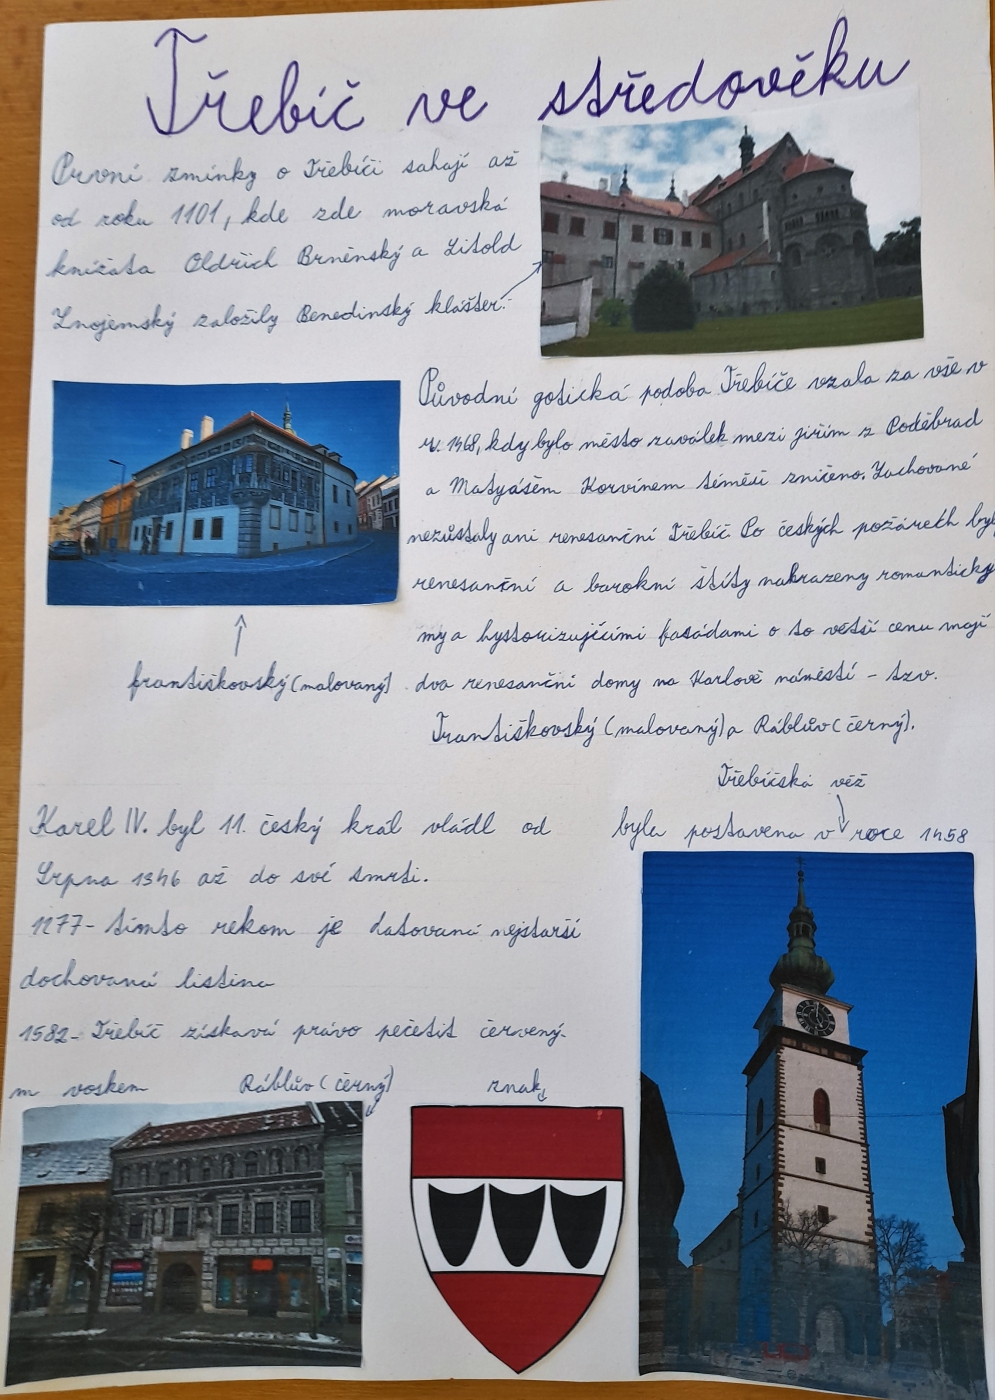 Třebíč ve středověku
První zmínky o Třebíči sahají až
od roku 1101, kde zde moravská
knížata Oldřich Brněnský a Litold
Znojemský založily Benedinský klášter.
Původní gotická podoba Třebíče vzala za vše v
r. 1468, kdy bylo město zaválek mezi jiřím z Poděbrad
a Matyášem Korvínem téměři zničeno. Zachované
nezůstaly ani renesanční Třebíč Po českých požárech byly
renesanční a barokní štíty nahrazeny romanticky
my a hystorizujícími fasádami o to větší cenu mají
dva renesanční domy na Karlově náměstí - tzv.
Františkovský (malovaný) a Ráblův (černý).
františkovský (malovaný)
Třebíčská věž
byla postavena v roce 1458
Karel IV. byl 11. český král vládl od
Srpna 1346 až do své smrti.
1277- tímto rokem je datovaná nejstarší
dochovaná listina
1582- Třebíč získavá právo pečetit červený-
m voskem
Ráblův (černý)
znak